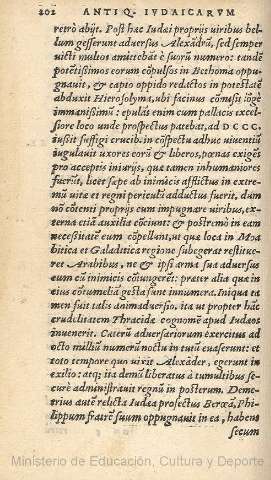 202 ANTIQ. IVDAICARVM
retrò abijt. Post hæc Iudæi proprijs viribus bel-
lum gesserunt aduersus Alexãdrũ, sed semper
victi multos amittebãt è suorũ numero: tandẽ
potẽtissimos eorum cõpulsos in Bethoma oppu-
gnauit, & capto oppido redactos in potestatẽ
abduxit Hierosolyma, ubi facinus cõmisit lõgè
immanissimũ: epulãs enim cum pallacis excel-
siore loco unde prospectus patebat, ad DCCC.
iussit suffigi crucib. in cõspectu adhuc uiuentiũ
iugulauit uxores eorũ & liberos, pœnas exigẽs
pro acceptis iniurijs, quæ tamen inhumaniores
fuerũt, licet sæpe ab inimicis afflictus in extre-
mũ uitæ et regni periculũ adductus fuerit, dum
nõ cõtenti proprijs eum impugnare uiribus, ex-
terna etiã auxilia cõciunt & postremò in eam
necessitatẽ eum cõpellunt, ut quæ loca in Moa
bitica et Galaditica regione subegerat restitue-
ret Arabibus, ne & ipsi arma sua aduersus
eum cũ inimicis cõiungerẽt: præter alia quæ in
eius cõtumeliã gesta sunt innumera. Iniqua ta
men fuit talis animaduersio, ita ut propter hãc
crudelitatem Thracidæ cognomẽ apud Iudæos
inuenerit. Cæterũ aduersariorum exercitus ad
octo milliũ numerũ noctu in tutũ euaserunt: et
toto tempore quo uixit Alexãder, egerunt in
exilio: atq; ita demũ liberatus à tumultibus se-
curè administrauit regnũ in posterum. Deme-
trius autẽ relicta Iudæa profectus Berœã, Phi-
lippum fratrẽ suum oppugnauit in ea, habens
secum
Ministerio de Educación, Cultura y Deporte